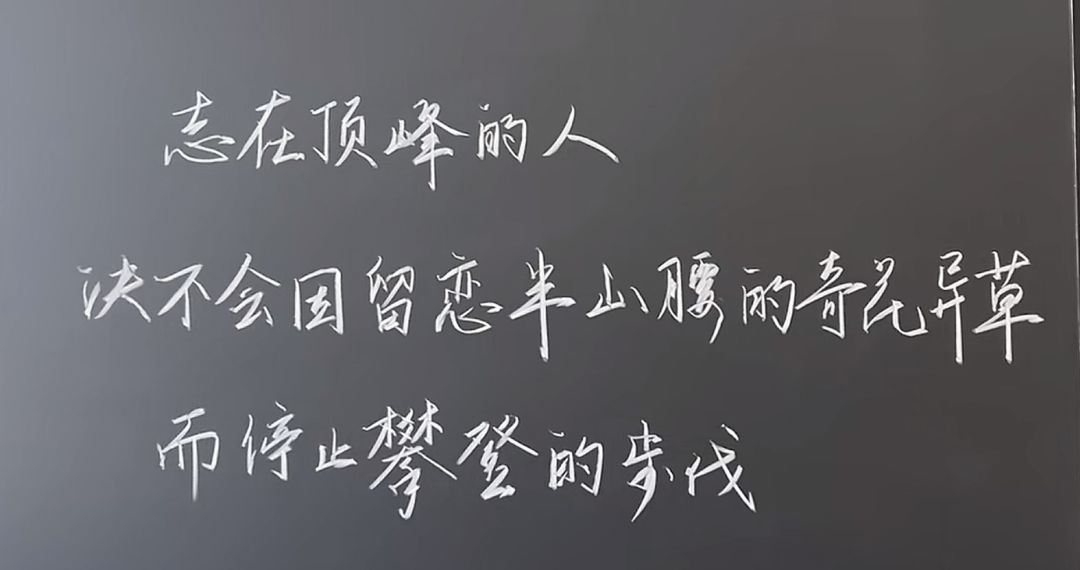 志在顶峰的人
决不会因留恋半山腰的奇花异草
而停止攀登的步伐